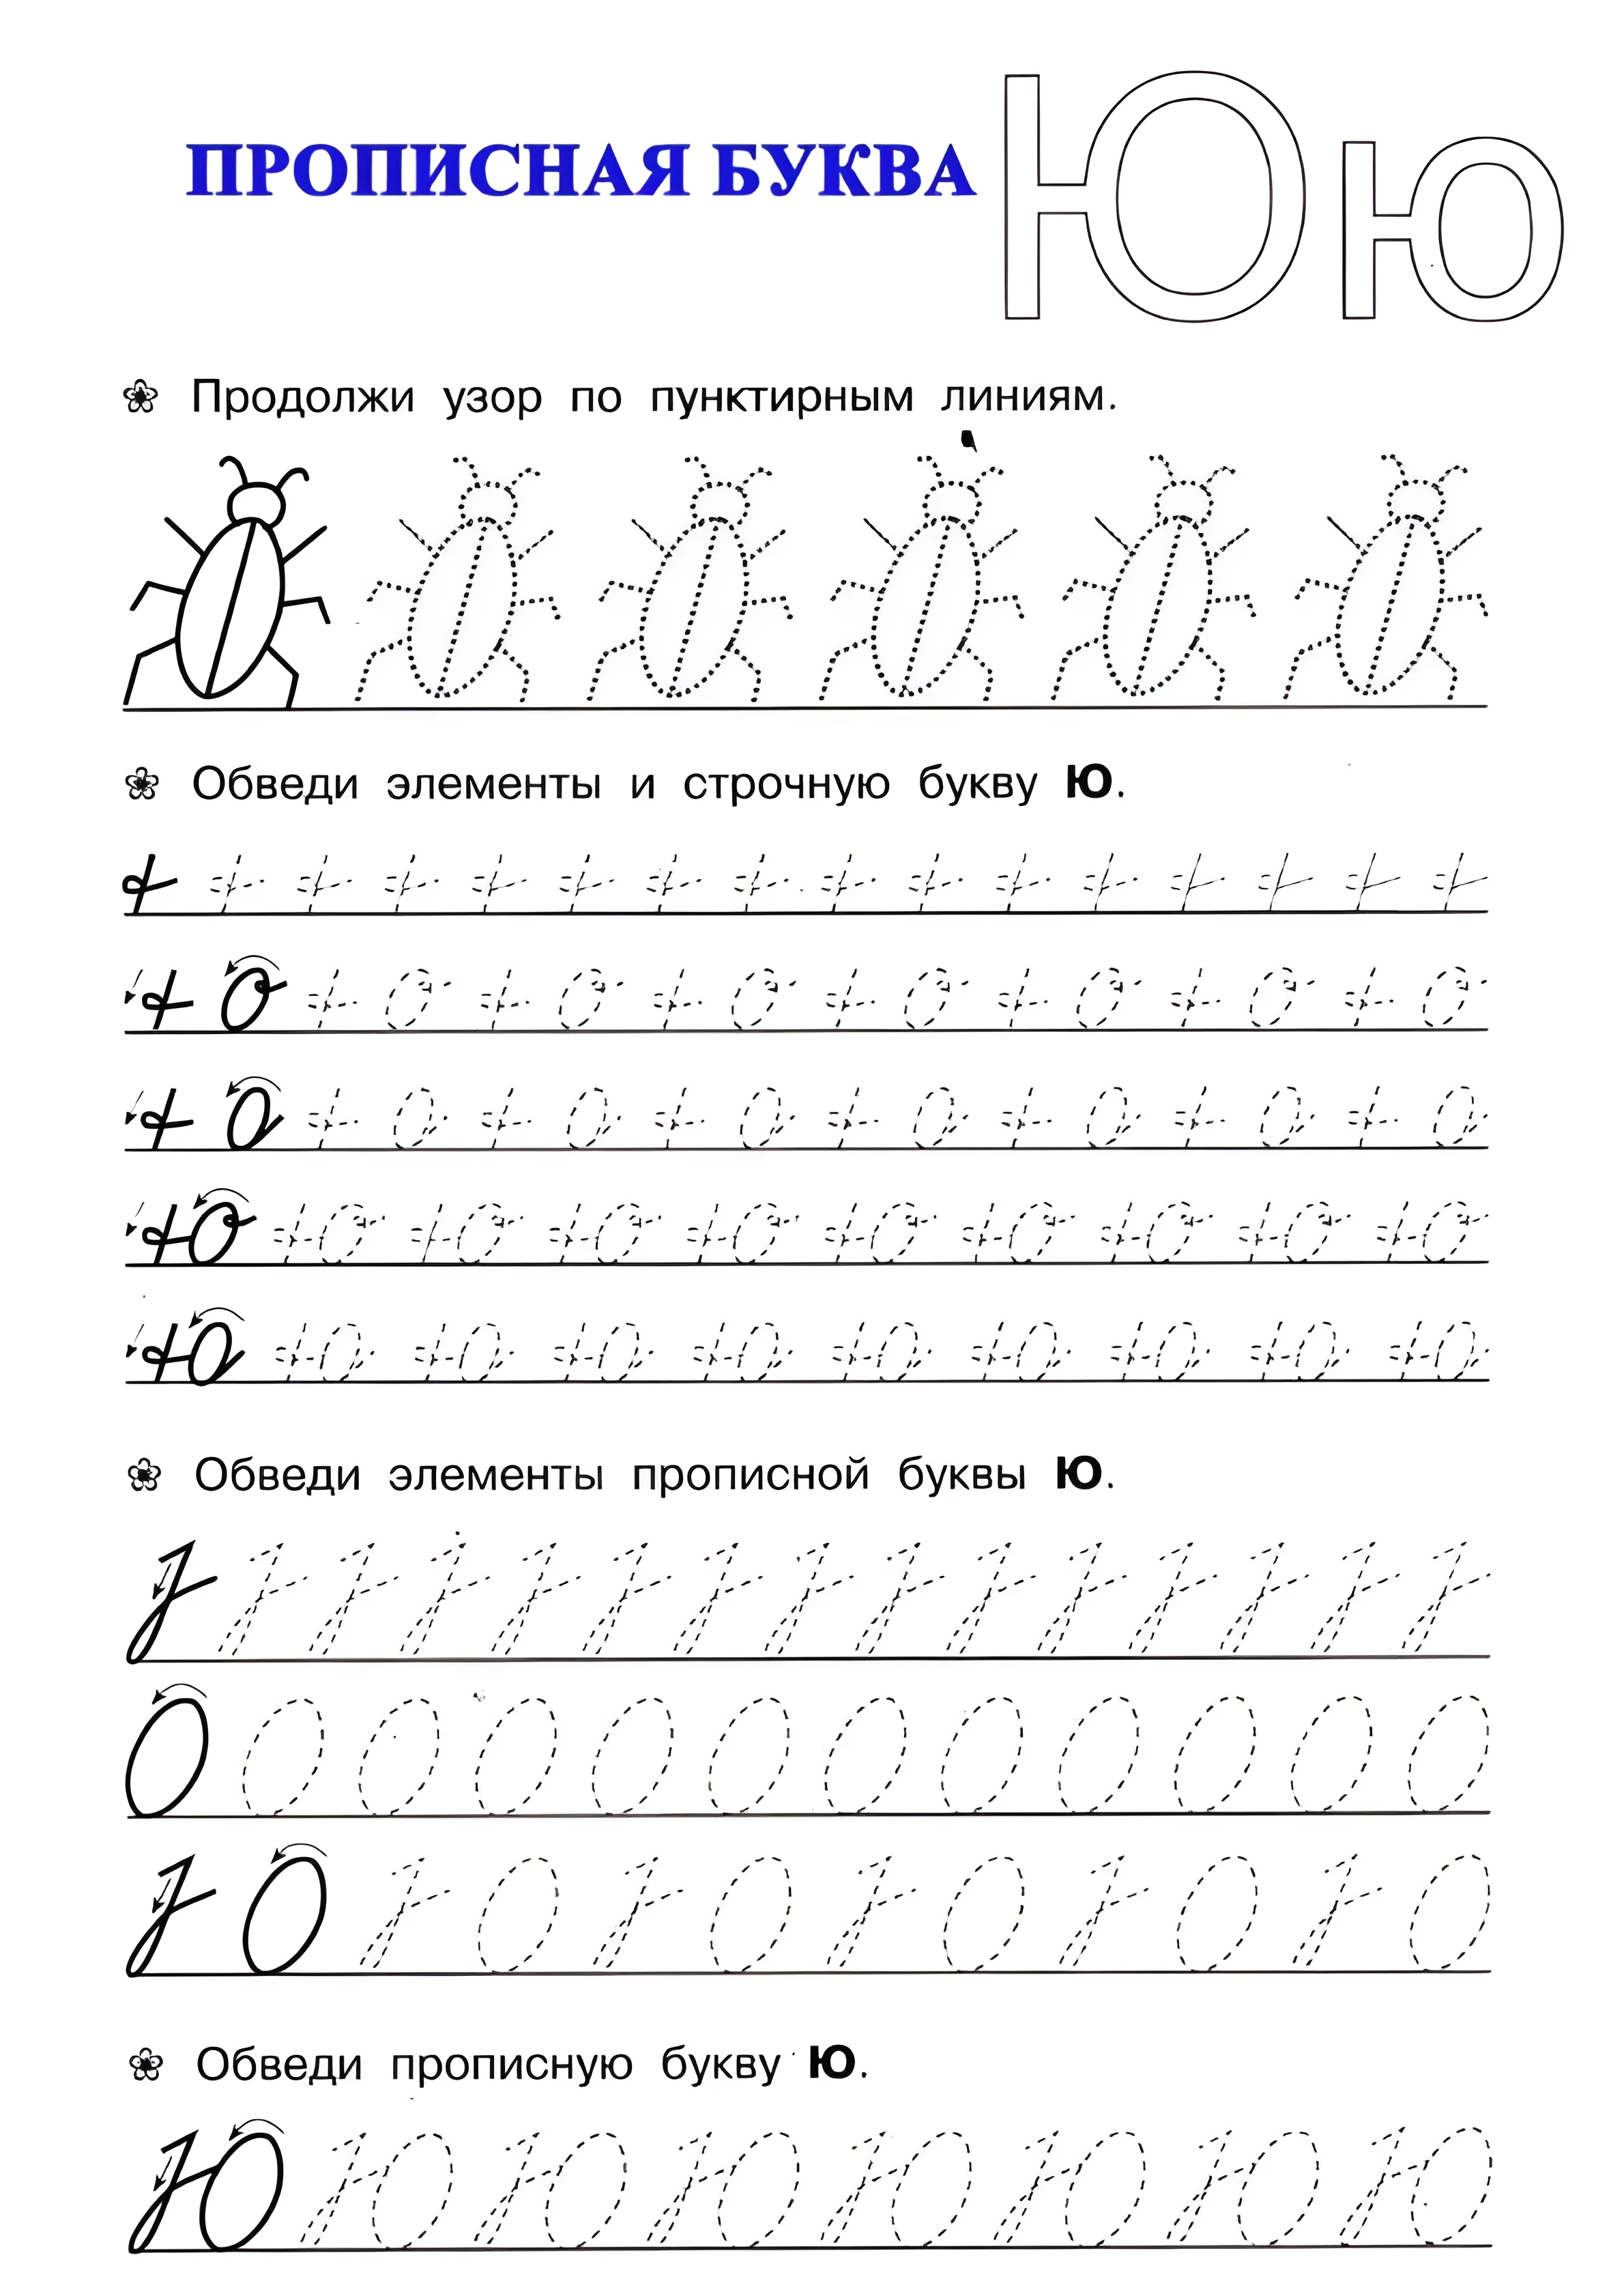 ПРОПИСНАЯ БУКВА Юю
Продолжи узор по пунктирным линиям.
Обведи элементы и строчную букву Ю.
Обведи элементы прописной буквы Ю.
Обведи прописную букву Ю.